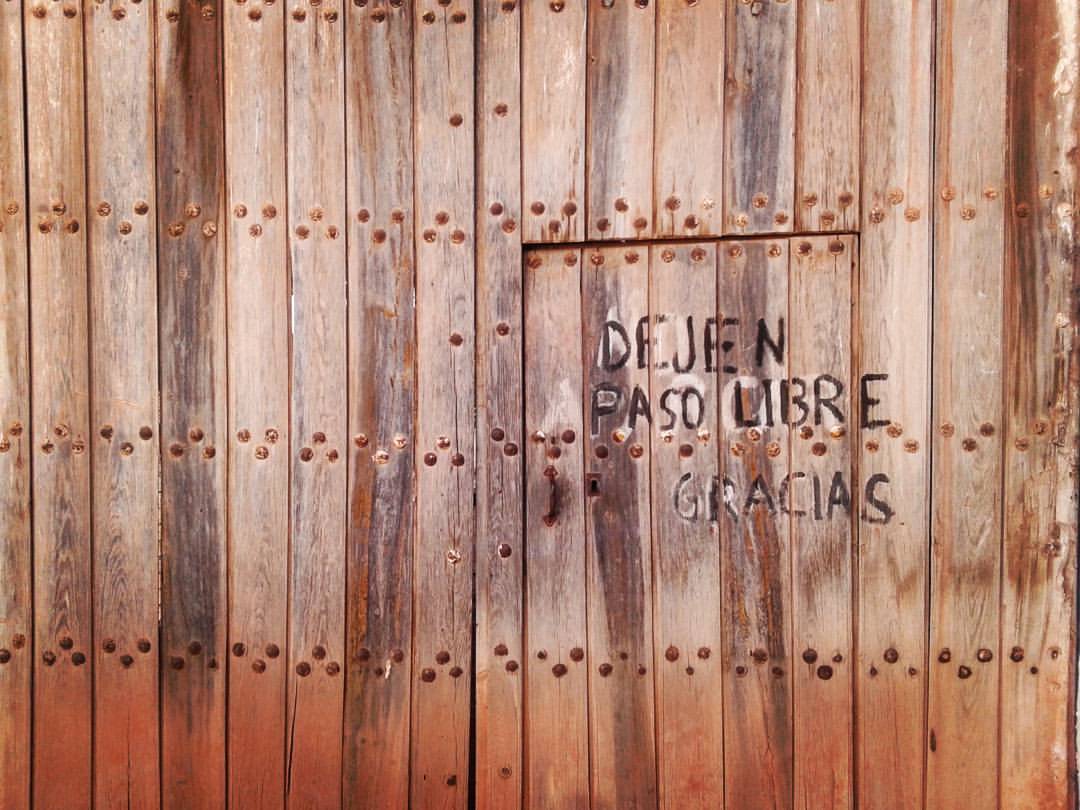 DEJEN
PASO LIBRE
GRACIAS